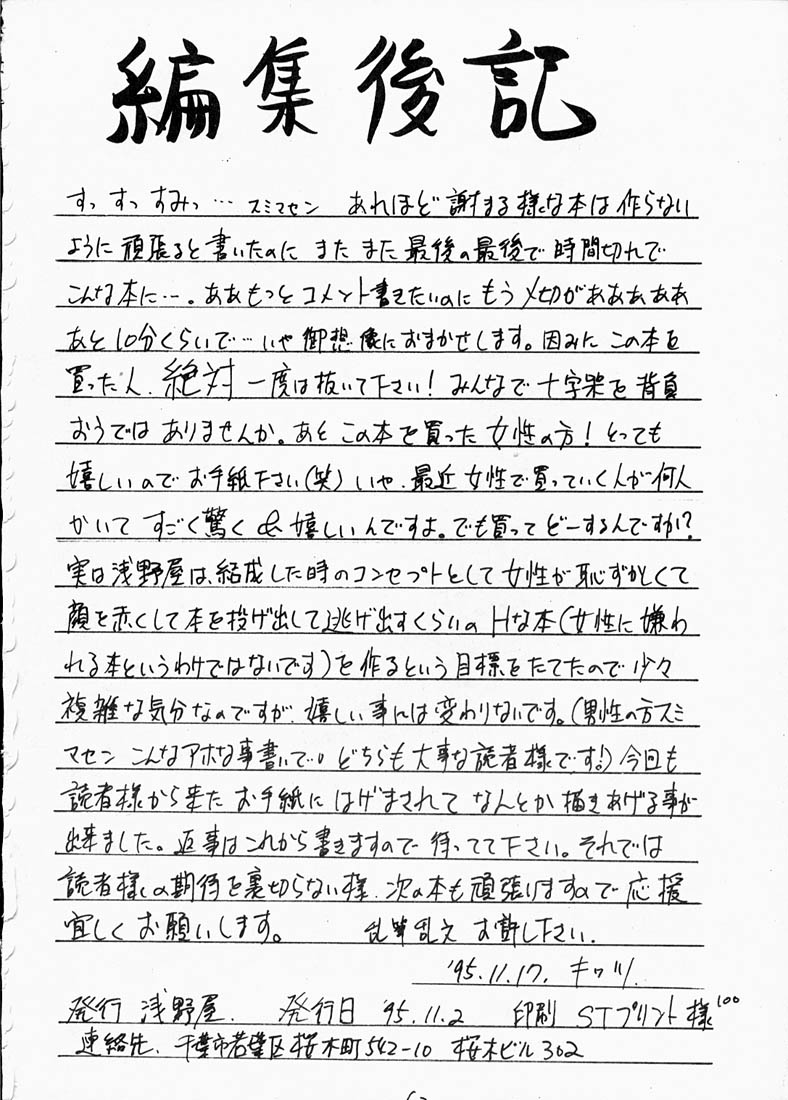 編集後記
すっすっすみっ… スミマセン あれほど謝まる様な本は作らない
ように頑張ると書いたのに またまた最後の最後で時間切れで
こんな本に…。ああもっとコメント書きたいのにもう〆切があああああ
あと10分くらいで…いや御想像におまかせします。因みにこの本を
買った人、絶対一度は抜いて下さい！みんなで十字架を背負
おうではありませんか。あとこの本を買った女性の方！とっても
嬉しいのでお手紙下さい(笑)いや、最近女性で買っていく人が何人
かいてすごく驚く&嬉しいんですよ。でも買ってどーするんですか!?
実は浅野屋は、結成した時のコンセプトとして女性が恥ずかしくて
顔を赤くして本を投げ出して逃げ出すくらいのHな本(女性に嫌わ
れる本というわけではないです)を作るという目標をたてたので少々
複雑な気分なのですが、嬉しい事には変わりないです。(男性の方スミ
マセンこんなアホな事書いて。どちらも大事な読者様です!)今回も
読者様から来たお手紙にはげまされてなんとか描きあげる事が
出来ました。返事はこれから書きますので待ってて下さい。それでは
読者様の期待を裏切らない様、次の本も頑張りますので応援
宜しくお願いします。 乱筆乱文お許し下さい.
'95.11.17. キッツ.
発行 浅野屋. 発行日 '95.11.2 印刷 STプリント様100
連絡先. 千葉市若葉区桜木町542-10 桜木ビル302